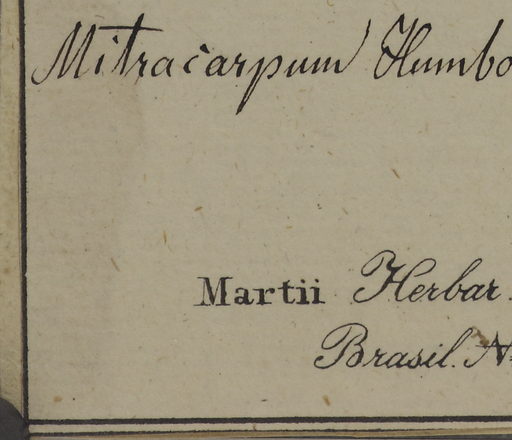 Mitracarpum Humbo
Martii Herbar.
Brasil. N